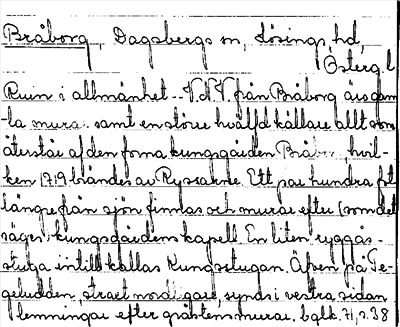 Bråborg, Dagsbergs sn, Lösings hd,
Östergl
Ruin i allmänhet.. V d V från Bråborg äro gam
-la murar samt en större hvälfd källare allt som
återstår af den forna kungsgården Bråborg, hvil-
ken 1719 brändes av Ryssarne. Ett par hundra fot
längre från sjön finnas och murar efter (som det
säges) kungsgårdens kapell. En liten ryggås-
stuga intill kallas Kungsstugan. Äfven på Te-
geludden, strax nordligare, synas i vestra sidan
lemningar efter gråstensmurar. bglk. 71, s. 38